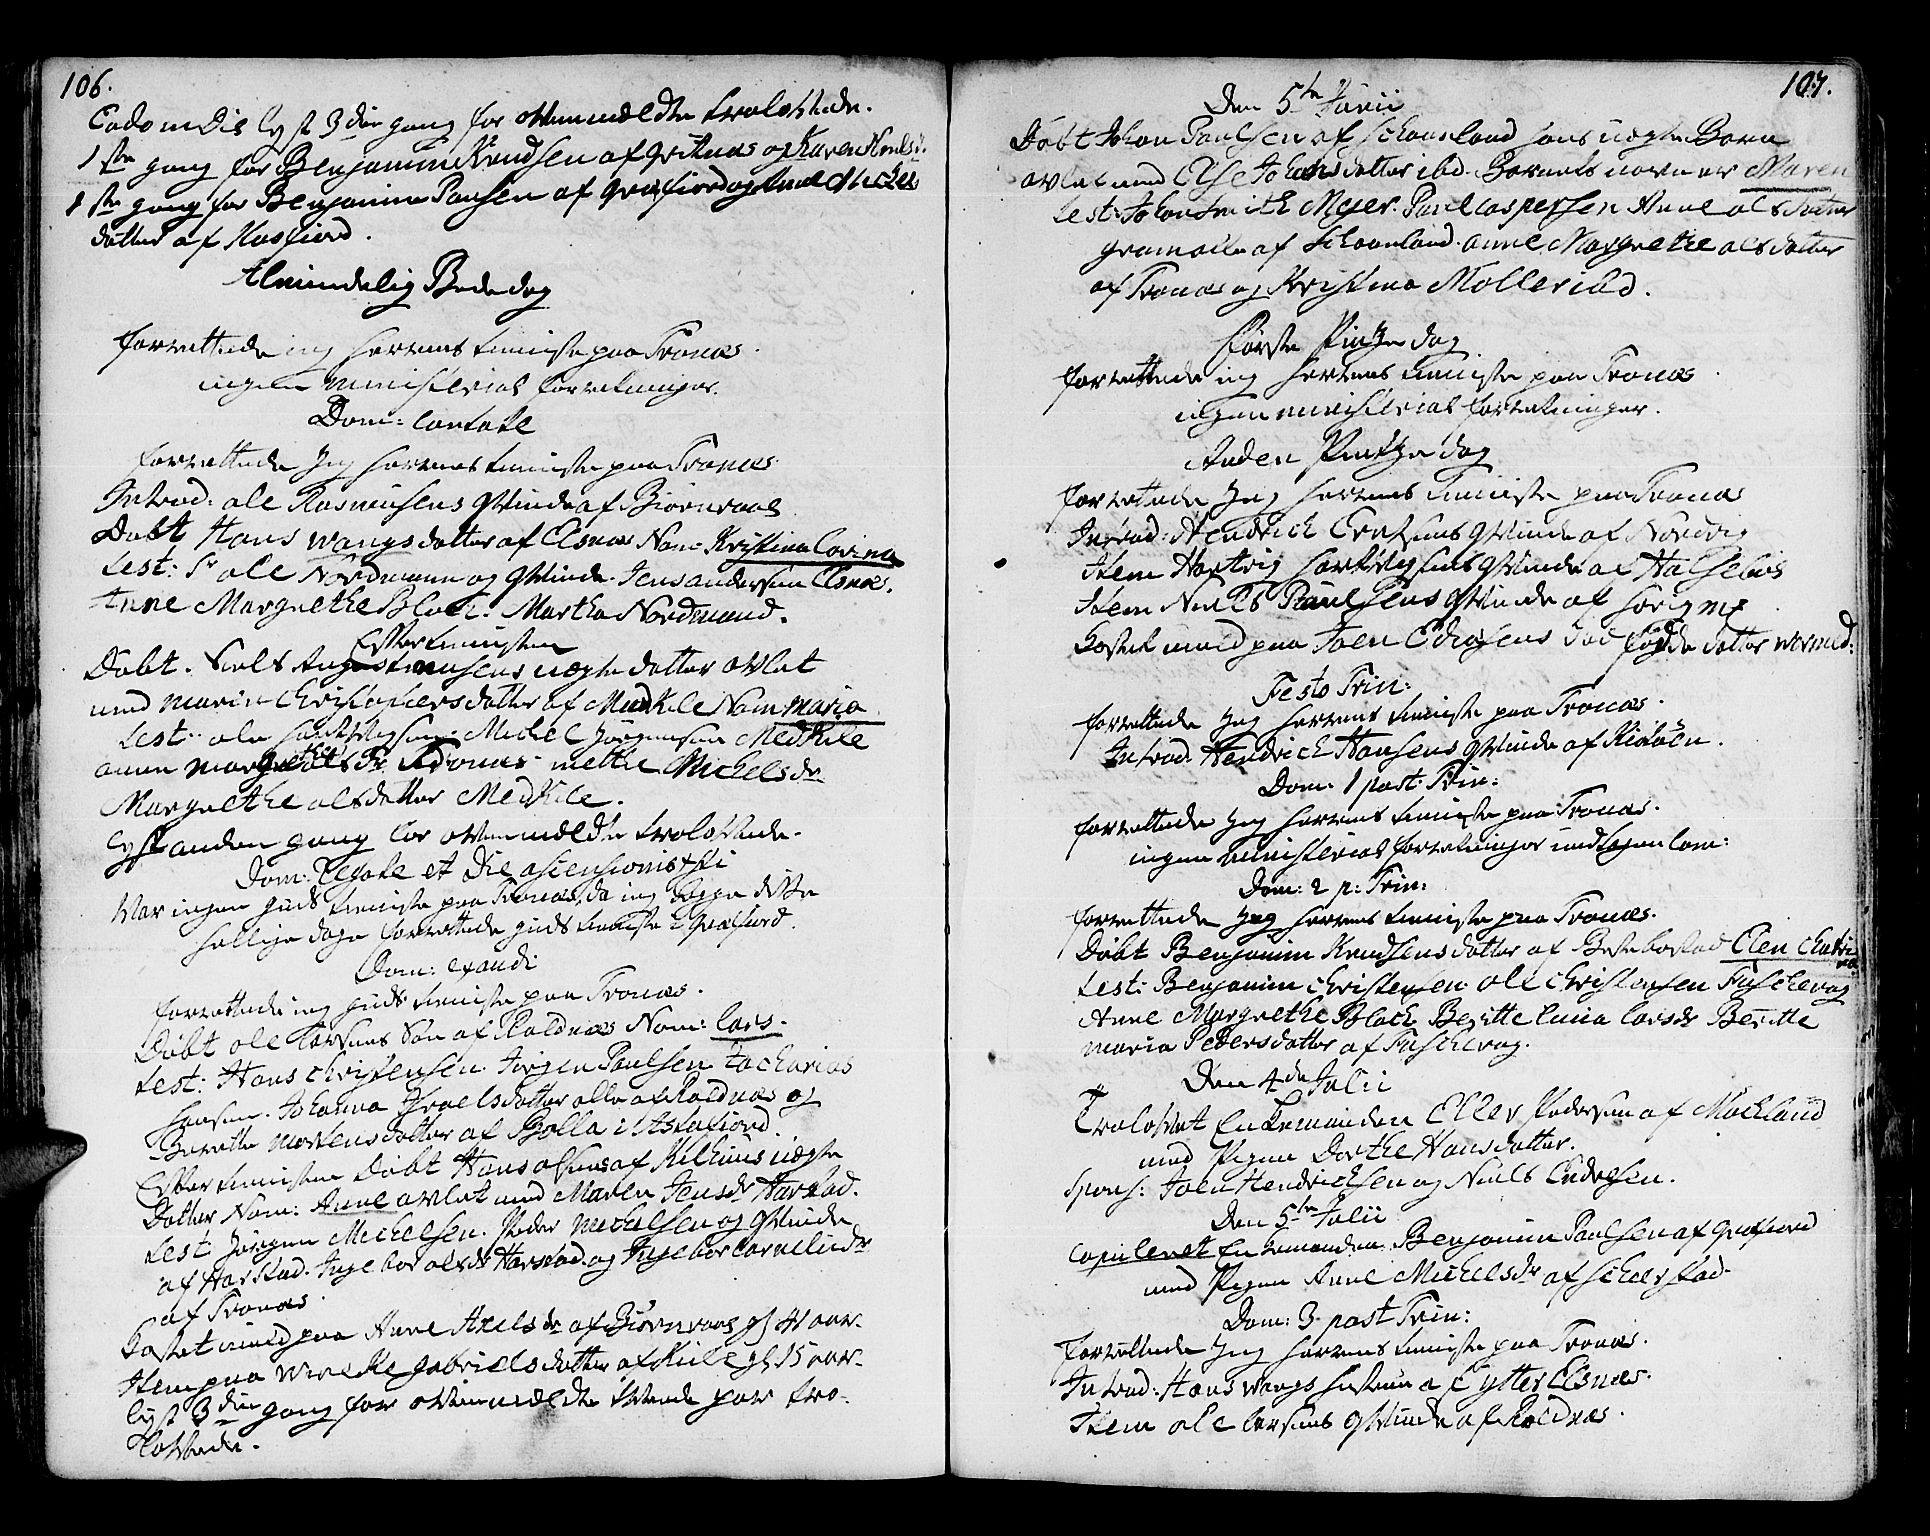 106.
Eadom Die lyst 3die gang for ovenmeldte trolovede.
1ste gang for Benjamin Knudsen af Gritnæs og Karen Niels dr
1ste gang for Benjamin Paulsen af Grafiord og Anne Michels
datter af Kasfiord.
Almindelig Bededag
forrettede ieg Herrens tieniste paa Tronæs.
ingen ministerial forretninger.
Dom: Cantate
forrettede Jeg Herrens tieniste paa Tronæs
Introd: ole Rasmusens Qvinde af Biørnraae
Døbt Hans Wangs datter af Elsnæs Nom: Kristina Covina
test: Sr ole Nordmann og Qvinde. Jens andersen Elsnæs.
Anne Margrethe Bloch. Martha Nordmand.
Efter tienisten
Døbt. Niels Augustinusens uægte datter avlet
med Marin Christophersdatter af Medkile Nom: maria
test: ole Hartvigsen. Michel Jørgensen Medkile
anne margrethe ols dr Tronæs. mette Michels dr
Margrethe olsdatter Medkile.
lyst anden gang for ovenmeldte trolovede.
Dom: Rogate et Die ascensionis Xsti
Var ingen guds tieniste paa Tronæs, da ieg begge disse
hellige dage forrettede guds tieniste i Qvæfiord.
Dom: exaudi
forrettede ieg guds tieniste paa Tronæs.
Døbt ole larsens Søn af Roldnæs Nom: lars.
test: Hans Christensen. Jørgen Paulsen Zacharias
Hansen. Johanna Israelsdatter alle af Roldnæs og
Berette Mortensdatter af Bolla i Astafiord.
Efter tienisten Døbt Hans olsens af Kilhuus uægte
Dotter Nom: Anne avlet med Maren Jensdr Harstad.
test Jørgen Michelsen. Peder Michelsen og Qvinde
af Harstad. Ingebor olsdr Harstad. og Ingebor Cornelius dr
af Tronæs.
Kastet muld paa Anne Axels dr af Biørnraae gl 41 aar.
Item paa Wivikke gabrielsdatter af Kiile gl 15 aar.
lyst 3die gang for ovenmeldte tvende par tro-
lovede.
107.
Den 5te Junii
Døbt Johan Paulsen af Schaanland hans uægte Barn
avlet med Else Johansdatter ibd. Barnets navn er Maren
test: Johan Smith Mejer. Paul Caspersen Anne olsdatter
gramalle af Schaanland. anne Margrethe olsdatter
af Tronæs og Kristina Moller ibd.
Første Pintze dag
forrettede ieg Herrens tieniste paa Tronæs
ingen ministerial forretninger.
Anden Pintze dag
forrettede Jeg Herrens Tieniste paa Tronæs
Introd: Hendrich Erntsens Qvinde af Nordvig
Item Hartvig Hartvigsens Qvinde af Halseboe
Item Niels Paulsens Qvinde af
Kastet muld paa Joen Edisens død fødde datter
Festo Trin:
forrettede Jeg Herrens tieniste paa Tronæs.
Introd. Hendrich Hansens Qvinde af Kiøøen.
Dom: 1 post Trin:
forrettede Jeg Herrens tieniste paa Tronæs.
ingen ministerial forretninger undtagen Com:
Dom: 2 p: Trin:
forrettede Jeg Herrens tieniste paa Tronæs.
Døbt Benjamin Knudsens datter af Besebostad Elen Chatri
na
test: Benjamin Christensen ole Christensen Fuschevog
Anne Margrethe Bloch Beritte lucia larsdr Beritte
maria Pedersdatter af Fuschevog.
Den 4de Julii
Trolovet Enkemanden Eller Pedersen af Mochland
med Pigen Dorthe Hansdatter.
Spons: Joen Hendrichsen og Niels Endresen.
Den 5te Julii
Copuleret Enkemanden Benjamin Paulsen af Qvæfiord
med Pigen Anne Michels dr af Scherstad.
Dom: 3 post Trin:
forrettede Jeg Herrens tieniste paa Tronæs.
Introd: Hans Wangs hustrue a Cytter Elsnæs.
Item ole larsens Qvinde af Roldnæs.